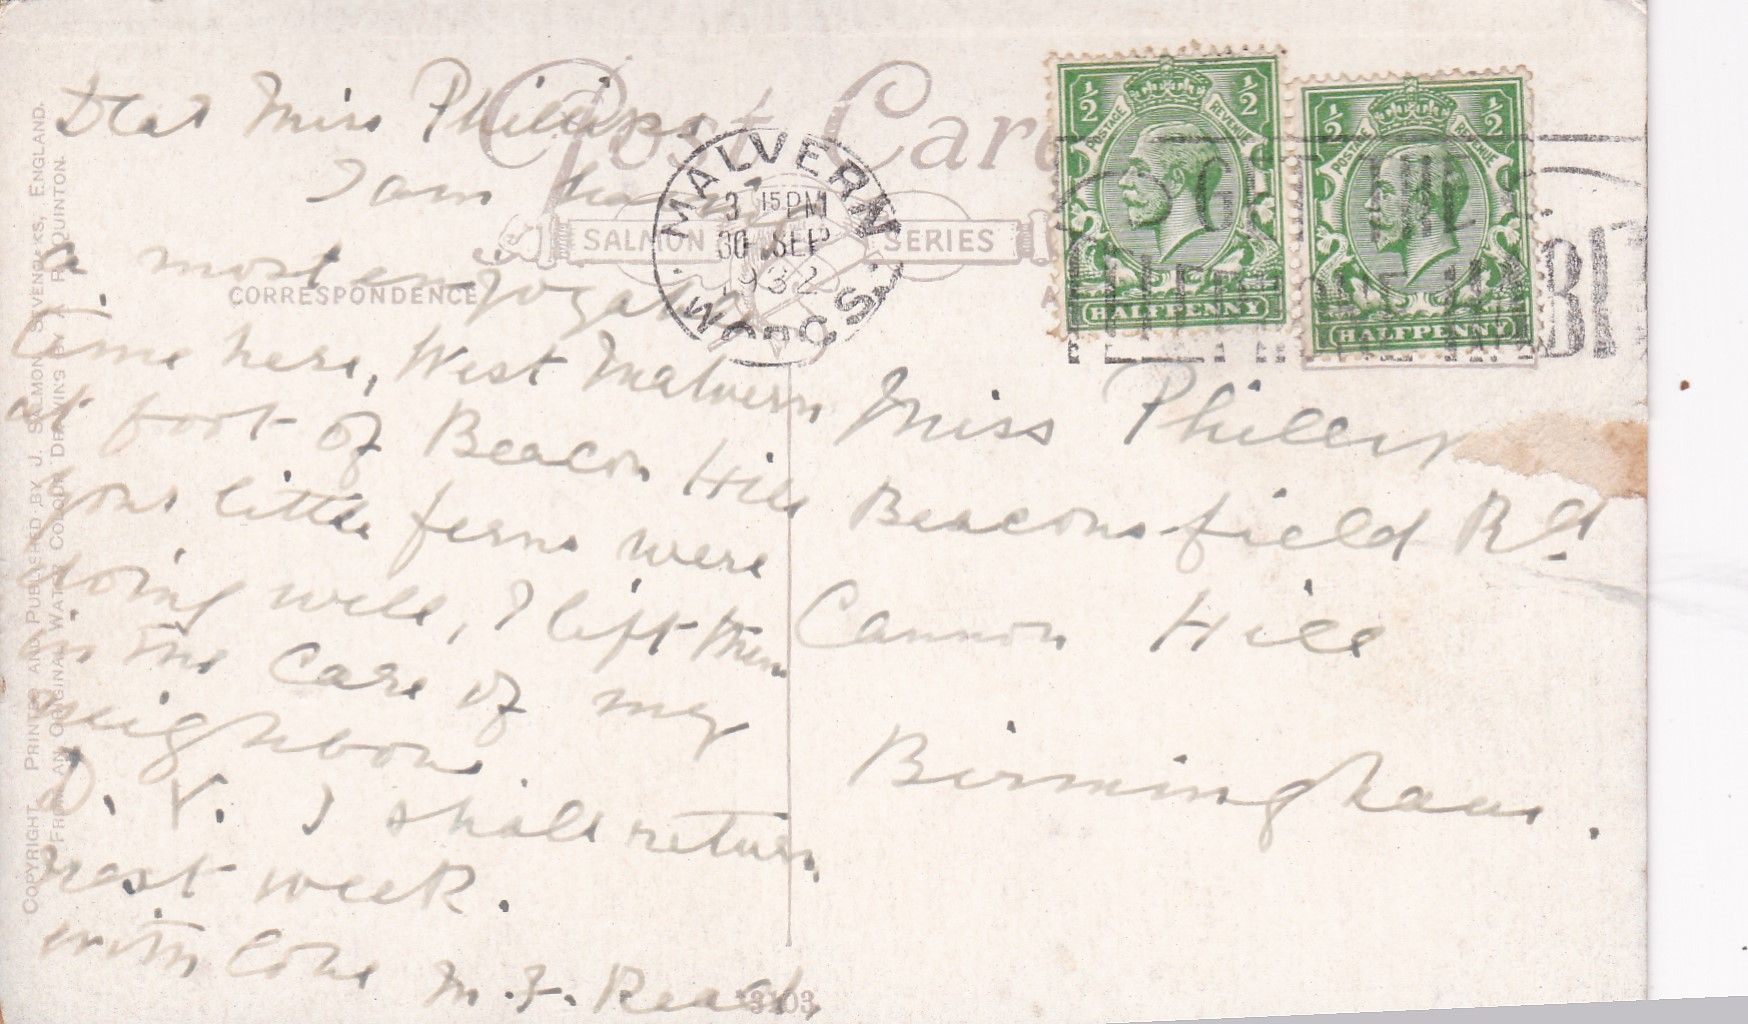 Post Card
SALMON SERIES
CORRESPONDENCE
COPYRIGHT PRINTED AND PUBLISHED BY J. SALMON SEVENOAKS, ENGLAND.
FROM AN ORIGINAL WATER COLOUR DRAWING BY A. R. QUINTON.
Dear Miss Phillips
I am having
a most enjoyable
time here, West Malvern
at foot of Beacon Hill
Your little ferns were
doing well, I left them
in the care of my
neighbour.
D. V. I shall return
next week.
with love
M. F.
3103
MALVERN
3 15 PM
30 SEP
1932
WORCS.
½ ½
POSTAGE REVENUE
HALFPENNY
½ ½
POSTAGE REVENUE
HALFPENNY
THE
HABIT
Miss Phillips
Beaconsfield Rd
Cannon Hill
Birmingham.